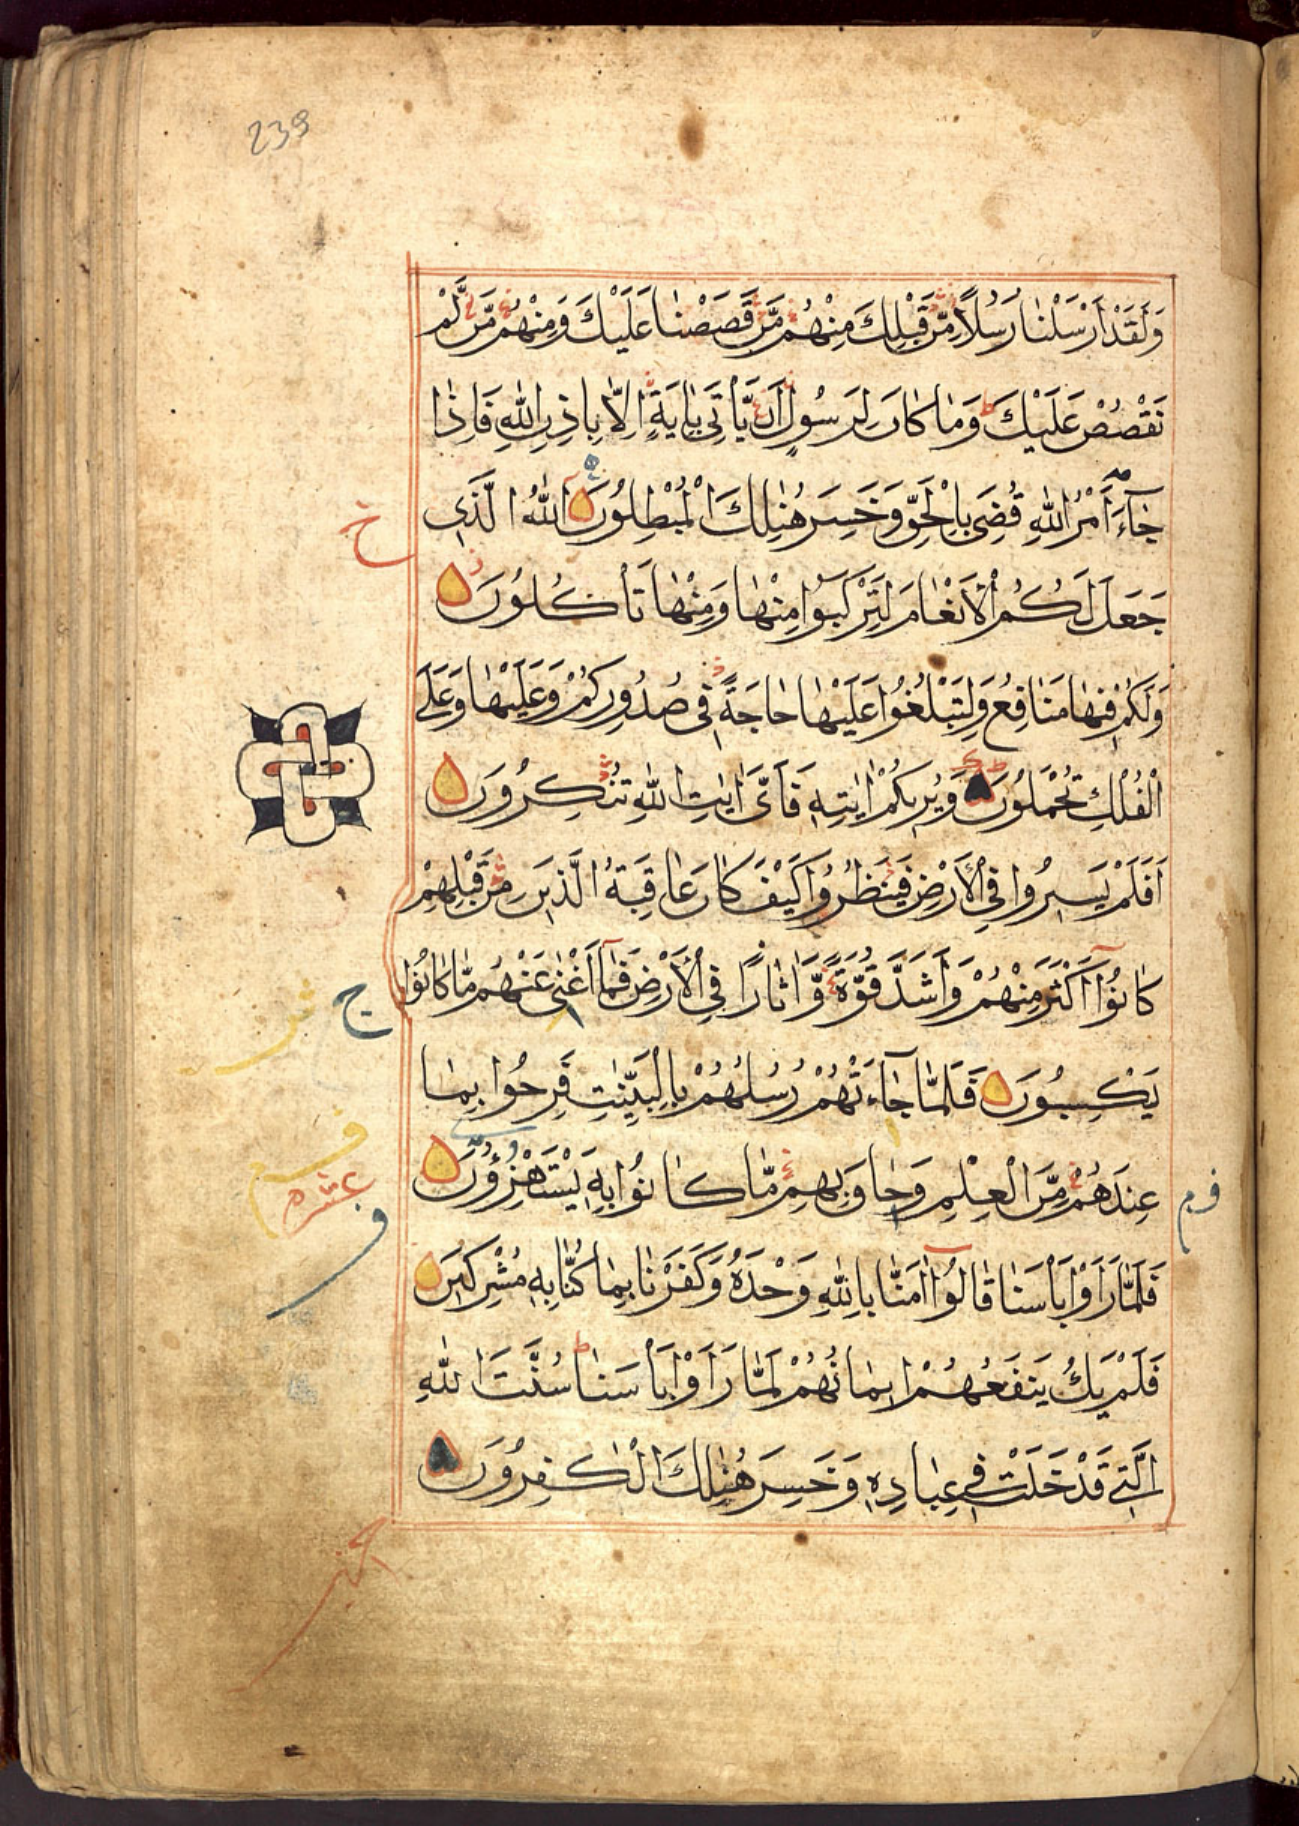 239
وَلَقَدْ أَرْسَلْنَا رُسُلًا مِّن قَبْلِكَ مِنْهُم مَّن قَصَصْنَا عَلَيْكَ وَمِنْهُم مَّن لَّمْ
نَقْصُصْ عَلَيْكَ وَمَا كَانَ لِرَسُولٍ أَن يَّأْتِيَ بِآيَةٍ إِلَّا بِإِذْنِ اللَّهِ فَإِذَا
جَآءَ أَمْرُ اللَّهِ قُضِيَ بِالْحَقِّ وَخَسِرَ هُنَالِكَ الْمُبْطِلُونَ اللَّهُ الَّذِي
خ
جَعَلَ لَكُمُ الْأَنْعَامَ لِتَرْكَبُوا مِنْهَا وَمِنْهَا تَأْكُلُونَ
وَلَكُمْ فِيهَا مَنَافِعُ وَلِتَبْلُغُوا عَلَيْهَا حَاجَةً فِي صُدُورِكُمْ وَعَلَيْهَا وَعَلَى
الْفُلْكِ تُحْمَلُونَ وَيُرِيكُمْ آيَاتِهِ فَأَيَّ آيَاتِ اللَّهِ تُنكِرُونَ
أَفَلَمْ يَسِيرُوا فِي الْأَرْضِ فَيَنظُرُوا كَيْفَ كَانَ عَاقِبَةُ الَّذِينَ مِن قَبْلِهِمْ
كَانُوا أَكْثَرَ مِنْهُمْ وَأَشَدَّ قُوَّةً وَّآثَارًا فِي الْأَرْضِ فَمَا أَغْنَى عَنْهُم مَّا كَانُوا
ج
يَكْسِبُونَ فَلَمَّا جَآءَتْهُمْ رُسُلُهُمْ بِالْبَيِّنَاتِ فَرِحُوا بِمَا
عِندَهُم مِّنَ الْعِلْمِ وَحَاقَ بِهِم مَّا كَانُوا بِهِ يَسْتَهْزِؤُنَ
عشره
فَلَمَّا رَأَوْا بَأْسَنَا قَالُوا آمَنَّا بِاللَّهِ وَحْدَهُ وَكَفَرْنَا بِمَا كُنَّا بِهِ مُشْرِكِينَ
فَلَمْ يَكُ يَنفَعُهُمْ إِيمَانُهُمْ لَمَّا رَأَوْا بَأْسَنَا سُنَّتَ اللَّهِ
الَّتِي قَدْ خَلَتْ فِي عِبَادِهِ وَخَسِرَ هُنَالِكَ الْكَافِرُونَ